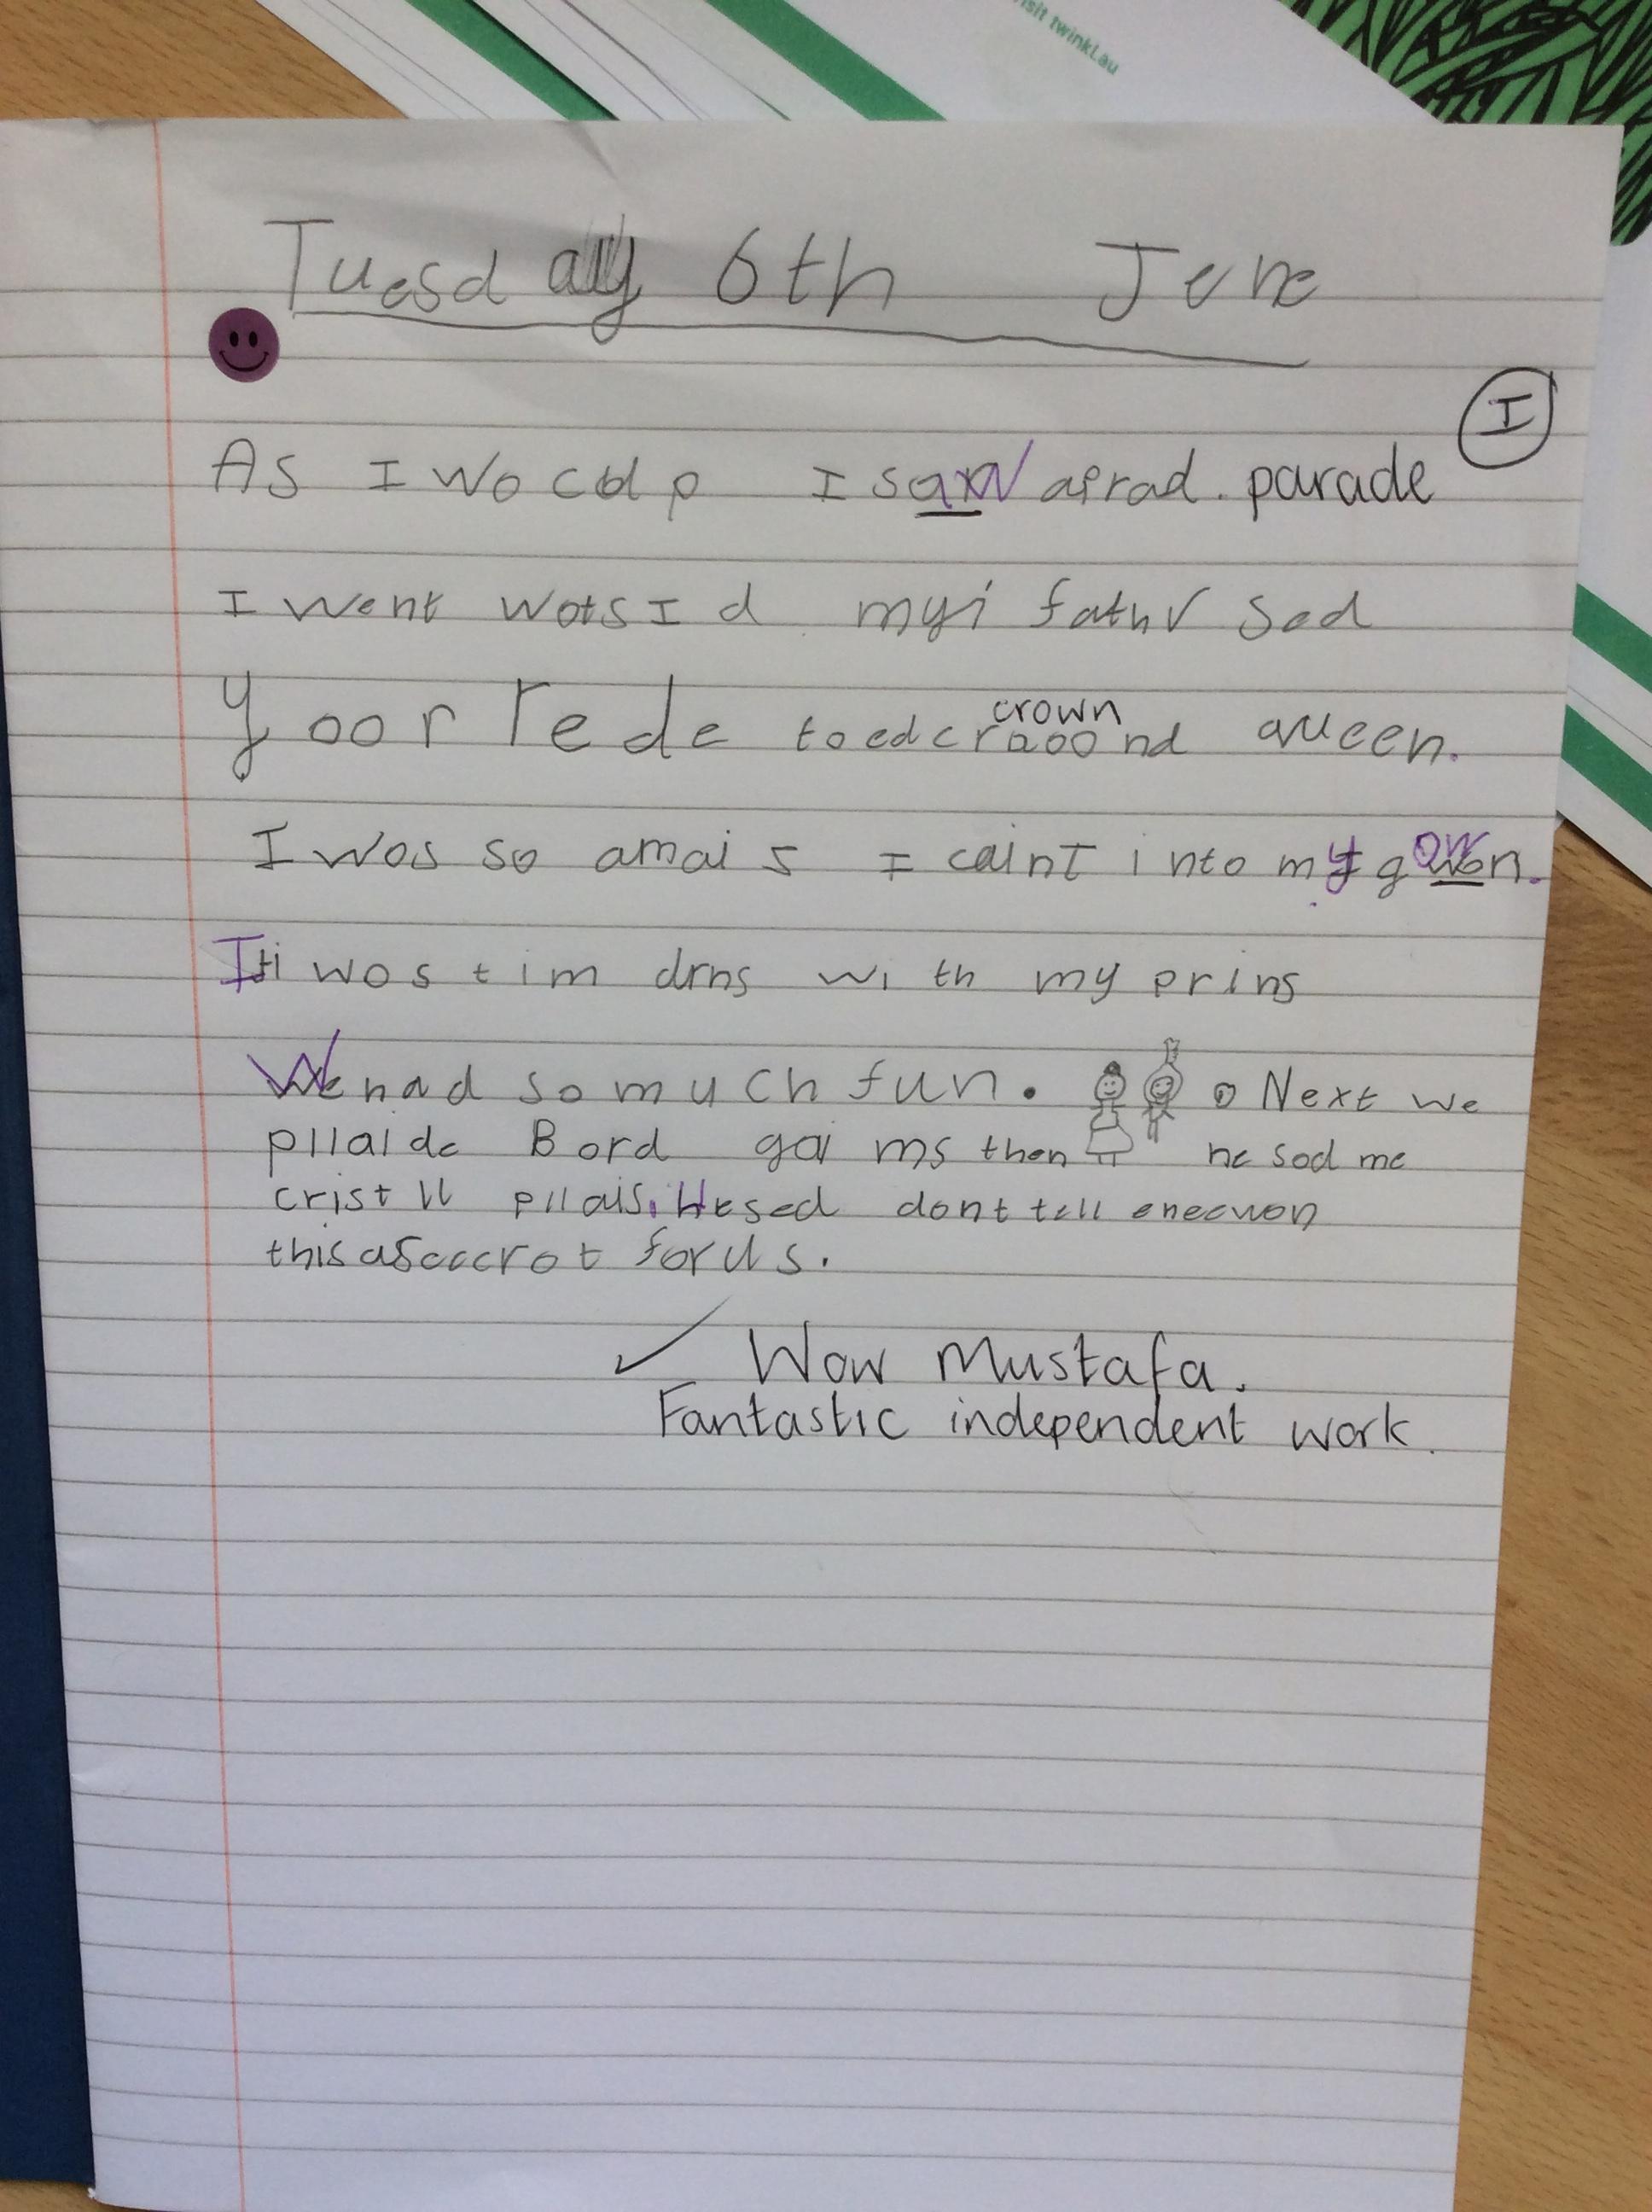 visit twinkl.au
Tuesday 6th June
I
As I wo cup I saw a prad. parade
I went wotsId myi fathr sed
yoor rede to ed craoond queen.
crown
I wos so amais I caint into my gown.
It wos tim drns with my prins
We had so much fun. Next we
pllaide Bord gaims then he sod me
cristll pllais. He sed dont tell eneewon
this a seecret for us.
✓ Wow Mustafa.
Fantastic independent work.